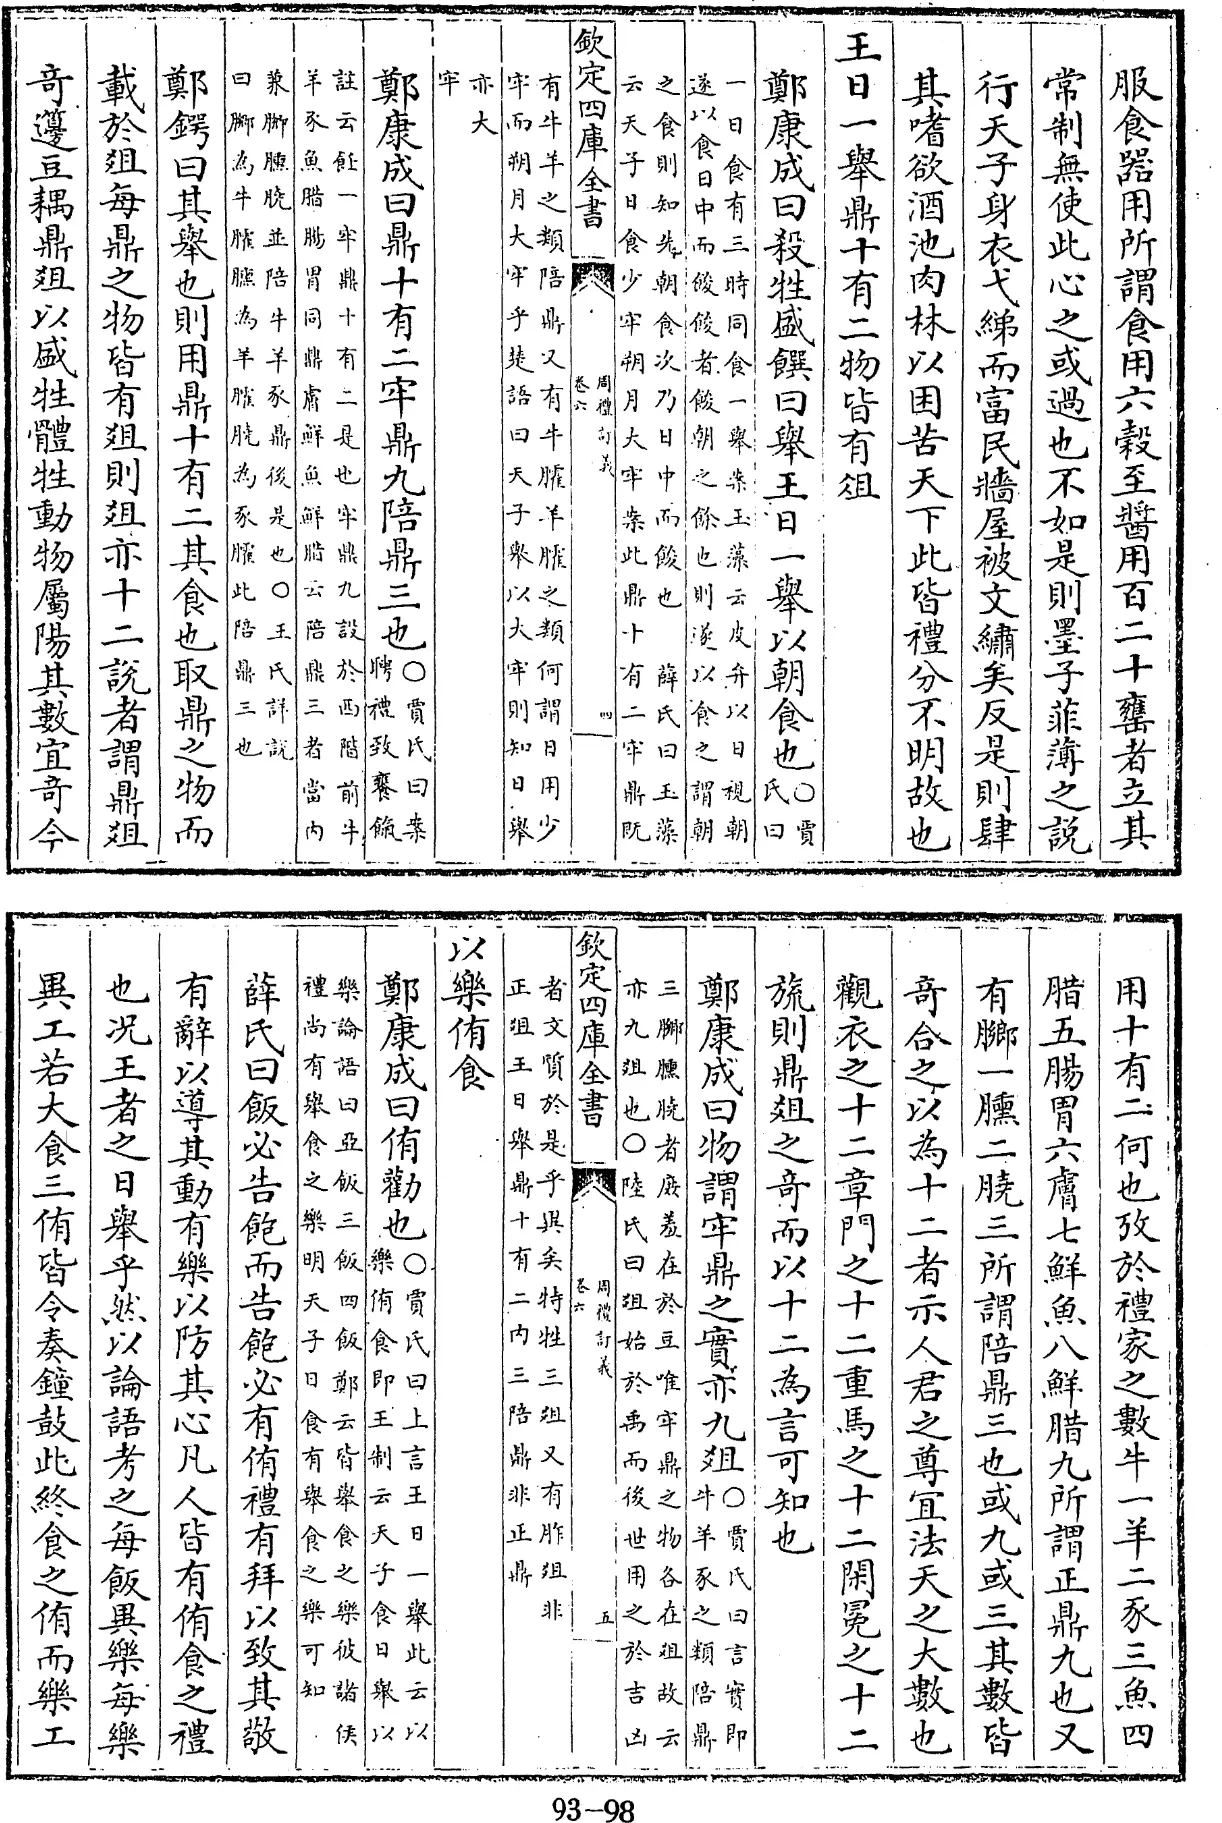 服食器用所謂食用六穀至醬用百二十罋者立其
常制無使此心之或過也不如是則墨子菲薄之説
行天子身衣弋綈而富民牆屋被文繡矣反是則肆
其嗜欲酒池肉林以困苦天下此皆禮分不明故也
王日一舉鼎十有二物皆有俎
鄭康成曰殺牲盛饌曰舉王日一舉以朝食也○賈
氏曰
一日食有三時同食一舉案玉藻云皮弁以日視朝
遂以食日中而餕餕者餕朝之餘也則遂以食之謂朝
之食則知先朝食次乃日中而餕也 薛氏曰玉藻
云天子日食少牢朔月大牢案此鼎十有二牢鼎既
欽定四庫全書 周禮訂義
卷六 四
有牛羊之類陪鼎又有牛臛羊臛之類何謂日用少
牢而朔月大牢乎楚語曰天子舉以大牢則知日舉
亦大
牢
鄭康成曰鼎十有二牢鼎九陪鼎三也○賈氏曰案
聘禮致饔餼
註云飪一牢鼎十有二是也牢鼎九設於西階前牛
羊豕魚腊腸胃同鼎膚鮮魚鮮腊云陪鼎三者當内
兼膷臐膮並陪牛羊豕鼎後是也○王氏詳説
曰膷為牛臛臐為羊臛膮為豕臛此陪鼎三也
鄭鍔曰其舉也則用鼎十有二其食也取鼎之物而
載於俎每鼎之物皆有俎則俎亦十二説者謂鼎俎
奇籩豆耦鼎俎以盛牲體牲動物屬陽其數宜奇今
用十有二何也攷於禮家之數牛一羊二豕三魚四
腊五腸胃六膚七鮮魚八鮮腊九所謂正鼎九也又
有膷一臐二膮三所謂陪鼎三也或九或三其數皆
奇合之以為十二者示人君之尊宜法天之大數也
觀衣之十二章門之十二重馬之十二閑冕之十二
旒則鼎俎之奇而以十二為言可知也
鄭康成曰物謂牢鼎之實亦九俎○賈氏曰言實即
牛羊豕之類陪鼎
三膷臐膮者庶羞在於豆唯牢鼎之物各在俎故云
亦九俎也○陸氏曰俎始於禹而後世用之於吉凶
欽定四庫全書 周禮訂義
卷六 五
者文質於是乎異矣特牲三俎又有胙俎非
正俎王日舉鼎十有二内三陪鼎非正鼎
以樂侑食
鄭康成曰侑勸也○賈氏曰上言王日一舉此云以
樂侑食即王制云天子食日舉以
樂論語曰亞飯三飯四飯鄭云皆舉食之樂彼諸侯
禮尚有舉食之樂明天子日食有舉食之樂可知
薛氏曰飯必告飽而告飽必有侑禮有拜以致其敬
有辭以導其動有樂以防其心凡人皆有侑食之禮
也况王者之日舉乎然以論語考之每飯異樂每樂
異工若大食三侑皆令奏鐘鼓此終食之侑而樂工
93-98